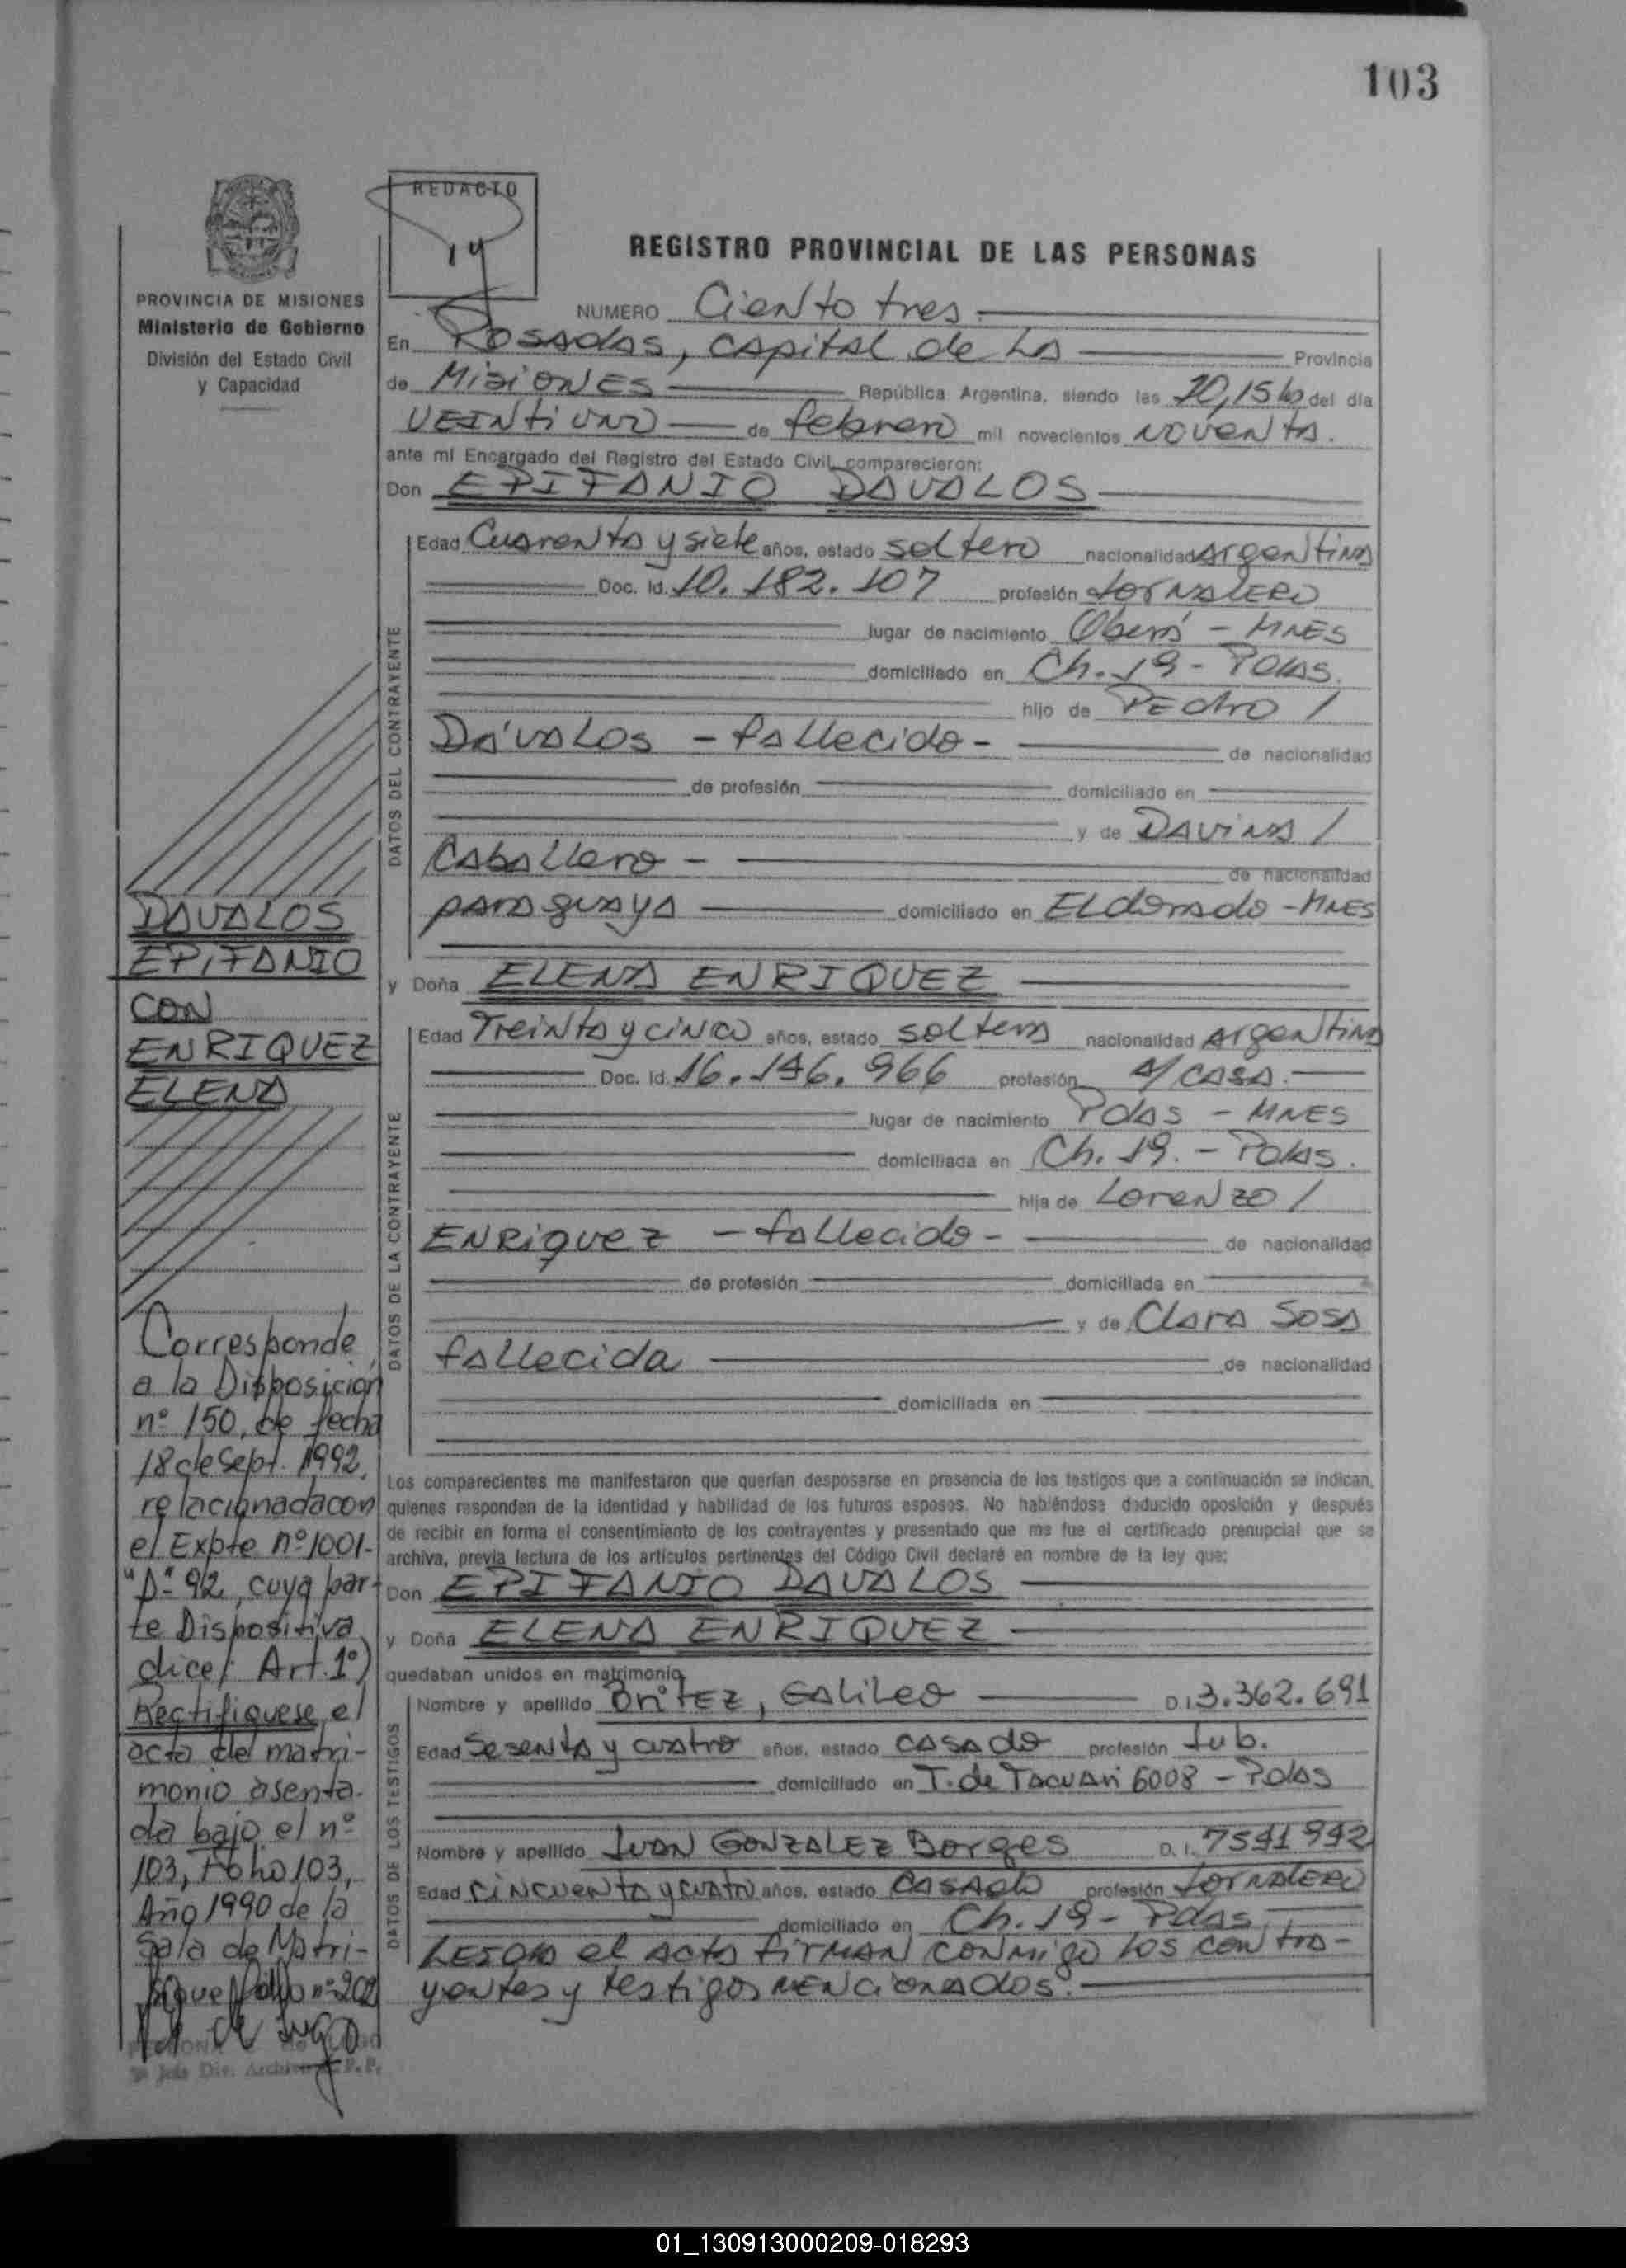 103
REDACTO
14
REGISTRO PROVINCIAL DE LAS PERSONAS
PROVINCIA DE MISIONES
Ministerio de Gobierno
División del Estado Civil
y Capacidad
NUMERO Ciento tres.
En Posadas, capital de La Provincia
de Misiones República Argentina, siendo las 10,15 hs del día
VEINTIUNO de febrero mil novecientos NOVENTA.
ante mí Encargado del Registro del Estado Civil comparecieron:
Don EPIFANIO DAVALOS
DATOS DEL CONTRAYENTE
Edad Cuarenta y siete años, estado soltero nacionalidad Argentina
Doc. Id. 10.182.107 profesión JORNALERO
lugar de nacimiento Oberá - MNES
domiciliado en Ch. 19 - Pdas.
hijo de PEdro /
Dávalos - fallecido - de nacionalidad
de profesión domiciliado en
y de DAVINA /
Caballero - de nacionalidad
paraguaya domiciliado en ELdorado - MNES
y Doña ELENA ENRIQUEZ
DATOS DE LA CONTRAYENTE
Edad Treinta y cinco años, estado soltera nacionalidad Argentina
Doc. Id. 16.146.966 profesión A/ CASA.
lugar de nacimiento Pdas - MNES
domiciliada en Ch. 19. - Pdas.
hija de Lorenzo /
ENRiquez - fallecido - de nacionalidad
de profesión domiciliada en
y de Clara Sosa
fallecida de nacionalidad
domiciliada en
Los comparecientes me manifestaron que querían desposarse en presencia de los testigos que a continuación se indican,
quienes responden de la identidad y habilidad de los futuros esposos. No habiéndose deducido oposición y después
de recibir en forma el consentimiento de los contrayentes y presentado que me fue el certificado prenupcial que se
archiva, previa lectura de los artículos pertinentes del Código Civil declaré en nombre de la ley que:
Don EPIFANIO DAVALOS
y Doña ELENA ENRIQUEZ
quedaban unidos en matrimonio
DATOS DE LOS TESTIGOS
Nombre y apellido BritEZ, Galileo D.I 3.362.691
Edad Sesenta y cuatro años, estado casado profesión Jub.
domiciliado en T. de Tacuari 6008 - Pdas
Nombre y apellido Juan GONZALEZ Borges D. I. 7541942
Edad Cincuenta y cuatro años, estado Casado profesión JORNALERO
domiciliado en Ch. 19 - Pdas.
Leida el acta firman conmigo los contra-
yentes y testigos mencionados.
DAVALOS
EPIFANIO
CON
ENRIQUEZ
ELENA
Corresponde
a la Disposición
nº 150, de fecha
18 de Sept. 1992,
relacionada con
el Expte nº 1001-
"D" 92, cuya par-
te Dispositiva
dice: Art. 1º)
Rectifiquese el
acta de matri-
monio asenta-
da bajo el nº
103, Folio 103,
Año 1990 de la
Sala de Matri-
Sigue Folio nº 202
Jefe Div. Archivo
01_130913000209-018293